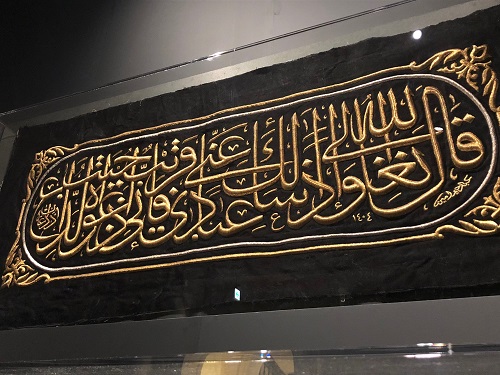 قال الله تعالى وإذا سألك عبادي عني فإني قريب أجيب دعوة الداع إذا دعان
١٤٠٤